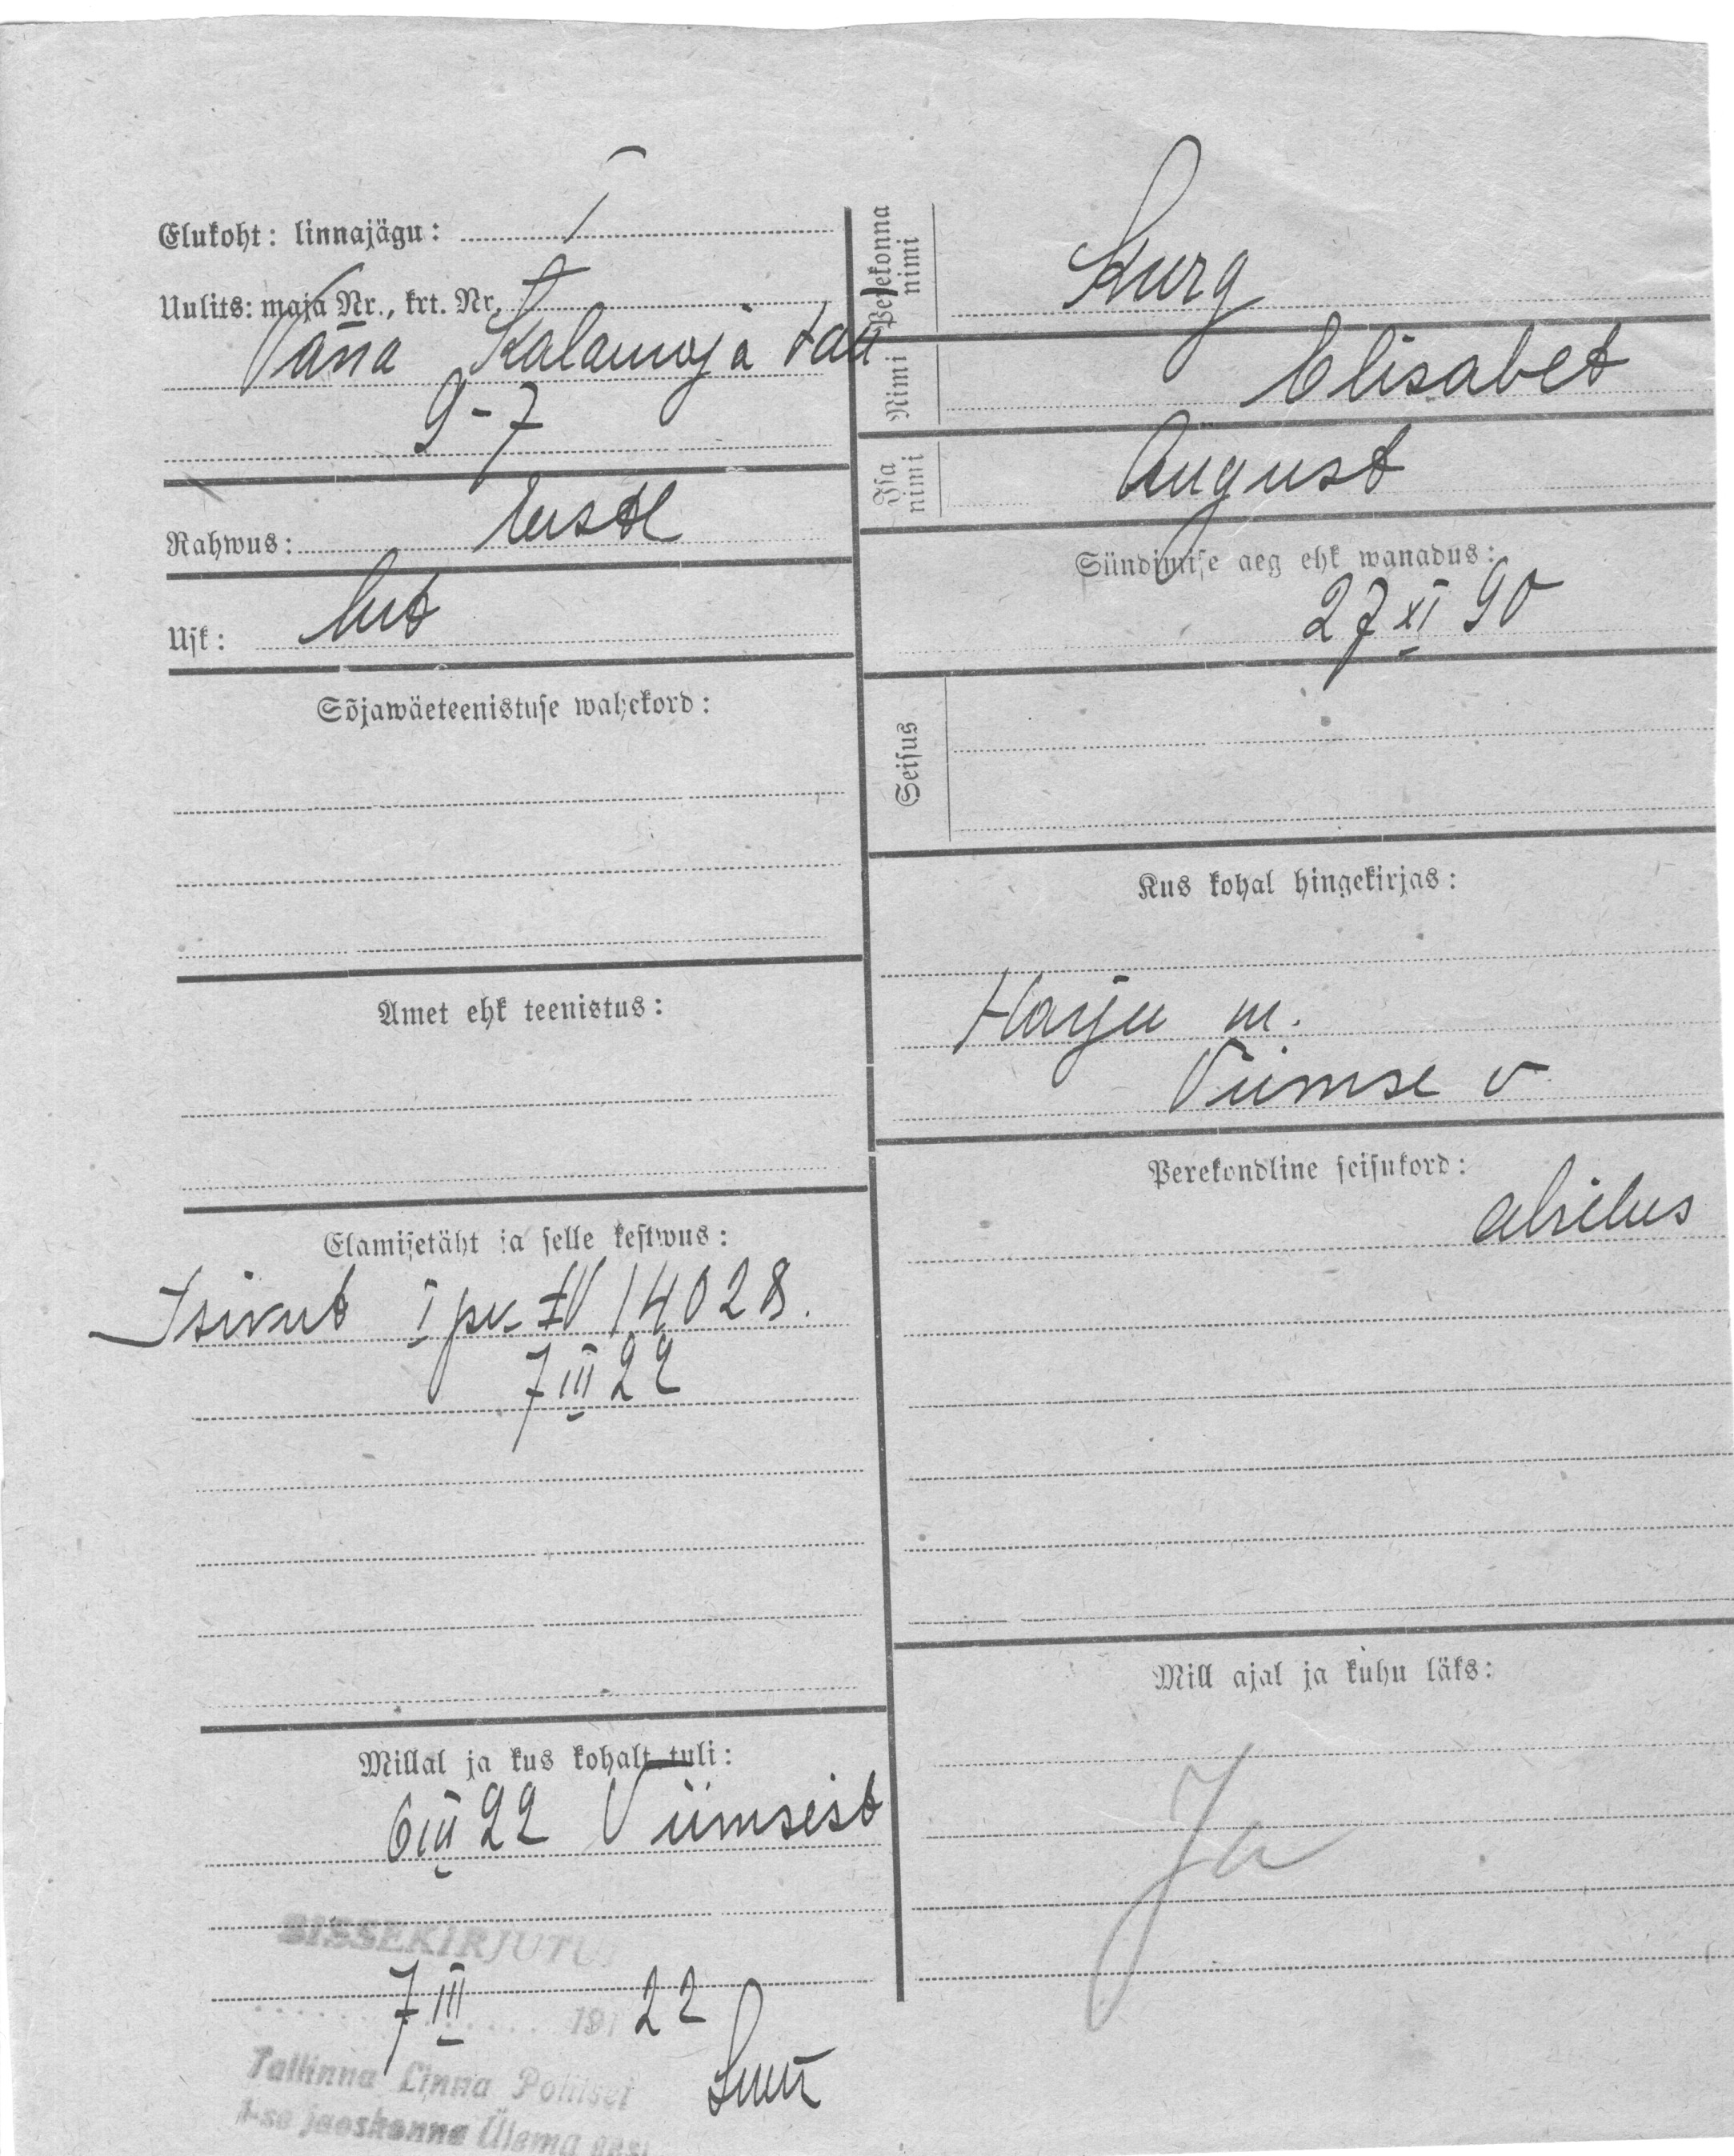 Elukoht: linnajägu: I
Uulits: maja Nr., krt. Nr.
Vana Kalamaja tän
9-7
Rahwus: eestl
Usk: lut
Sõjawäeteenistuse wahekord:
Amet ehk teenistus:
Elamisetäht ja selle kestwus:
Isikut I pk IV 14028.
7 III 22
Millal ja kus kohalt tuli:
6 III 22 Viimsist
SISSEKIRJUTUD
7 III 191 22
Tallinna Linna Politsei
1-se jaoskonna Ülema
Perekonna nimi
Kurg
Nimi
Elisabet
Isa nimi
August
Sündimise aeg ehk wanadus:
27 XI 90
Seisus
Kus kohal hingekirjas:
Harju m.
Viimse v
Perekondline seisukord:
abielus
Mill ajal ja kuhu läks:
Ja